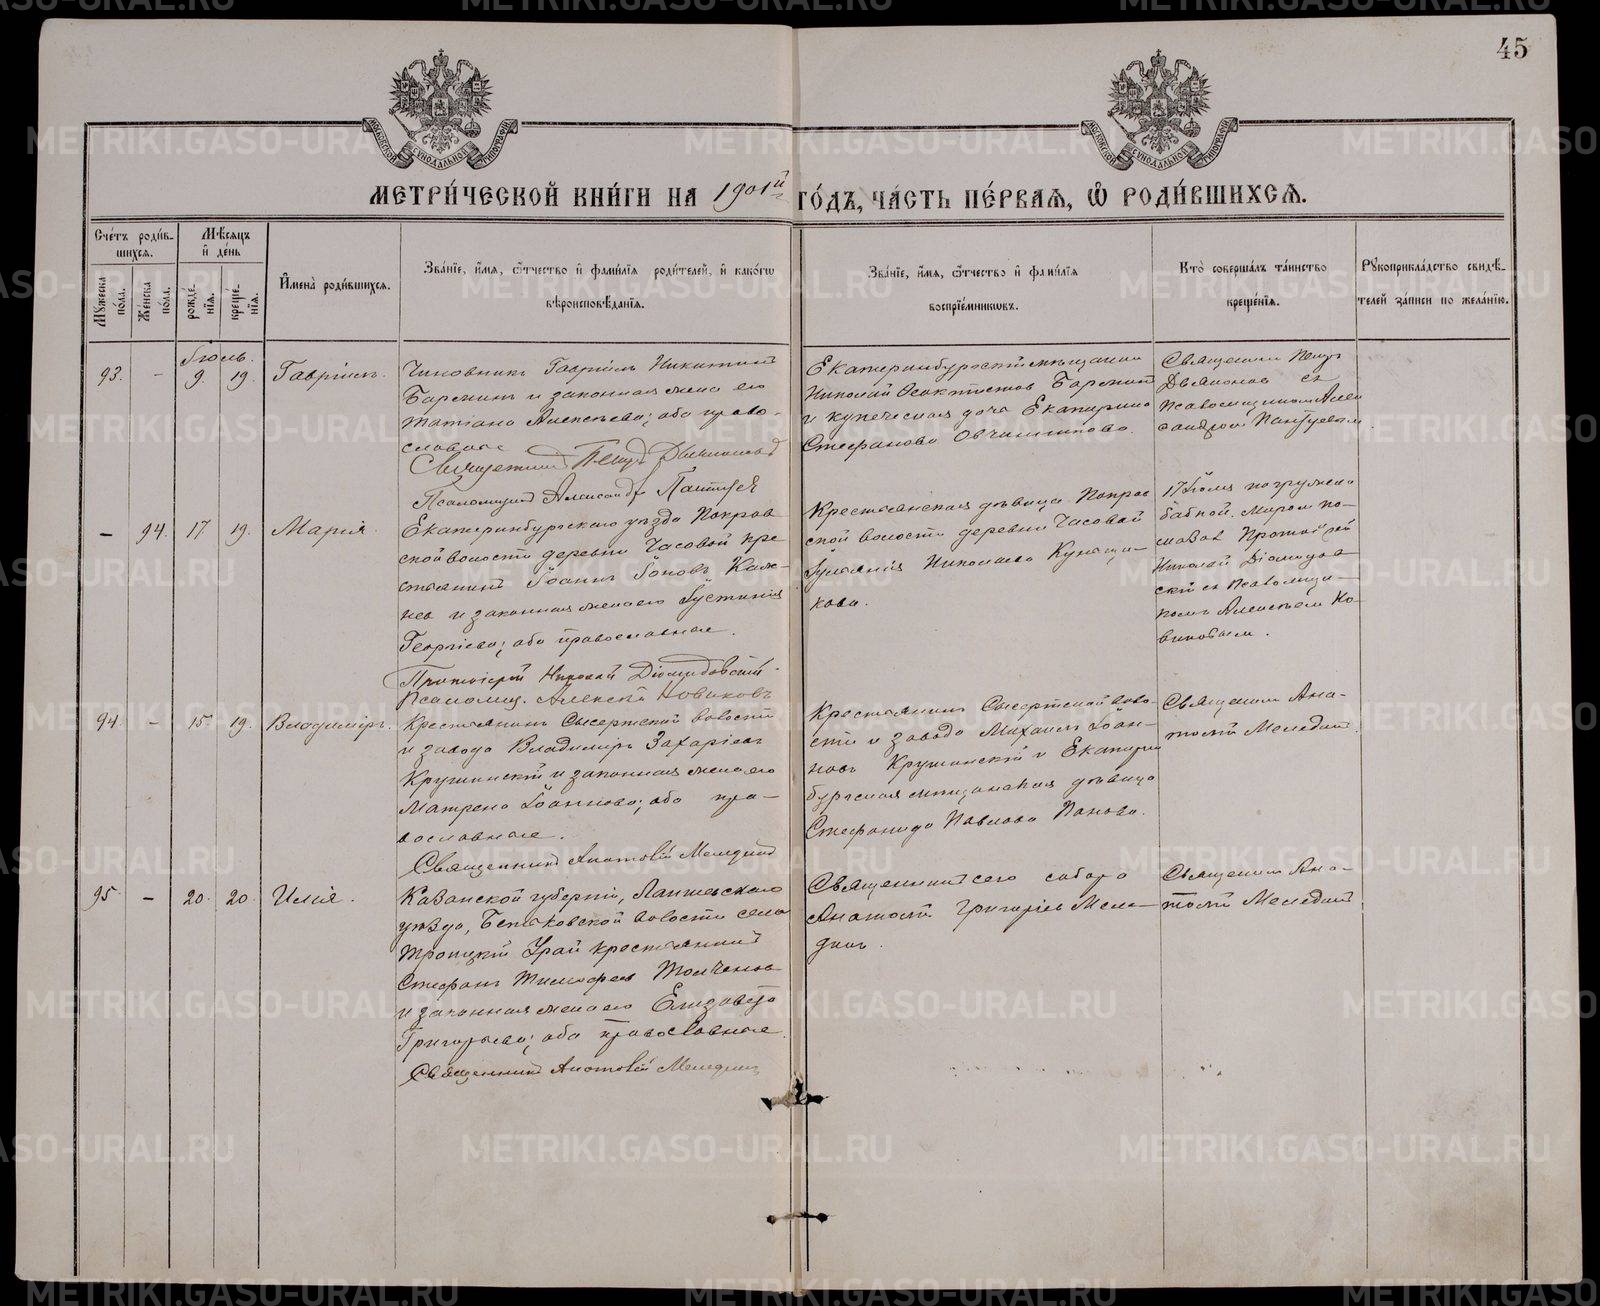 45
МОСКОВСКОЙ СѴНОДАЛЬНОЙ ТИПОГРАФІИ
МОСКОВСКОЙ СѴНОДАЛЬНОЙ ТИПОГРАФІИ
МЕТРИ́ЧЕСКОЙ КНИ́ГИ НА 1901й ГО́ДЪ, ЧА́СТЬ ПЕ́РВАѦ, Ѡ РОДИ́ВШИХСѦ.
Сче́тъ роди́в-
шихсѧ.
Мꙋжеска по́ла.
Же́нска по́ла.
Мѣ́сѧцъ
и҆ де́нь
рожде́-
нїѧ.
креще́-
нїѧ.
И҆мена̀ роди́вшихсѧ.
Зва́нїе, и҆́мѧ, ѻ҆́тчество и҆ фами́лїѧ роди́телей, и҆ како́гѡ
вѣроисповѣ́данїѧ.
Зва́нїе, и҆́мѧ, ѻ҆́тчество и҆ фами́лїѧ
воспрїе́мниковъ.
Кто̀ соверша́лъ та́инство
креще́нїѧ.
Рꙋкоприкла́дство свидѣ́-
телей за́писи по жела́нїю.
Іюль.
93. - 9. 19. Гавріилъ.
Чиновникъ Гавріилъ Никитинъ
и законная жена его
Татіана Алексѣева; оба право-
славные
Священникъ Петръ Дьяконовъ
Псаломщикъ Александръ
Екатеринбургскій мѣщанинъ
Николай Ѳеоктистовъ
и купеческая дочь Екатерина
Стефанова Овчинникова.
Священникъ Петръ
Дьяконовъ съ
Псаломщикомъ Алек
сандромъ
- 94. 17 19. Марія.
Екатеринбургскаго уѣзда Покров
ской волости деревни Часовой кре-
стьянинъ Іоаннъ Іоновъ
и законная жена его Іустинія
Георгіева; оба православные.
Протоіерей Николай Діомидовскій.
Псаломщ. Алексѣй Новиковъ
Крестьянская дѣвица Покров
ской волости деревни Часовой
Іуліанія Николаева Кунщи-
кова.
17 Іюля погружена
бабкой. Миром по-
мазав Протоіерей
Николай Діомидов
скій съ Псаломщи-
комъ Алексѣем Но
виковым.
94. - 15 19. Владиміръ.
Крестьянинъ Сысертской волости
и завода Владиміръ Захаріевъ
Крушинскій и законная жена его
Матрена Іоаннова; оба пра-
вославные.
Священникъ Анатолій Меледин
Крестьянинъ Сысертской воло-
сти и завода Михаилъ Іоан-
новъ Крушинскій и Екатерин
бургская мѣщанская дѣвица
Стефанида Павлова Панова.
Священникъ Ана-
толій Меледин
95. - 20. 20. Илія.
Казанской губерніи, Лаишевскаго
уѣзда, волости села
Троицкій Урай крестьянинъ
Стефанъ Тимофеев Толченов
и законная жена его Елизавета
Григорьева; оба православные.
Священникъ Анатолій Меледин
Священникъ сего собора
Анатолій Григоріев Меле-
дин.
Священникъ Ана-
толій Меледин
METRIKI.GASO-URAL.RU